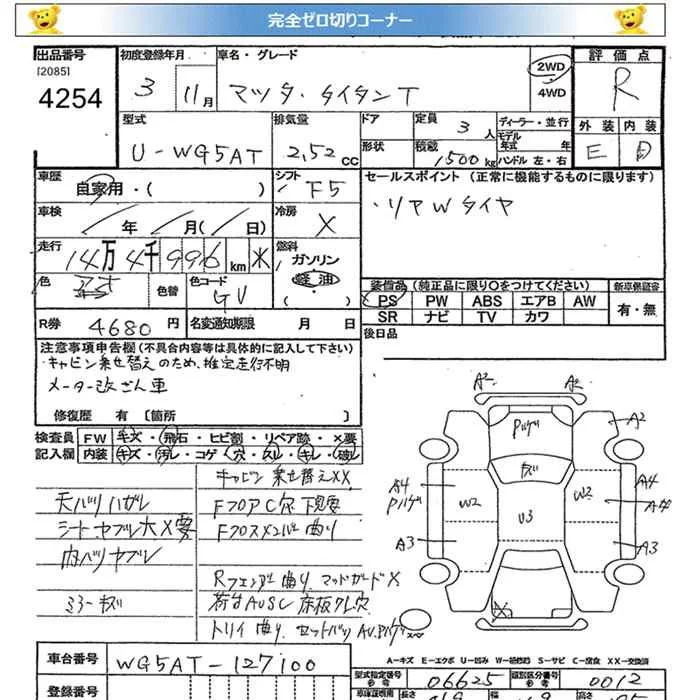 完全ゼロ切りコーナー
出品番号 初度登録年月 車名・グレード 2WD 評価点
[2085] 4WD R
4254 3 11月 マツダ・タイタンT
型式 排気量 ドア 定員 3人 ディーラー・並行 外装 内装
U-WG5AT 2,52cc 形状 積載 1500kg モデル年式 年 E D
ハンドル 左・右
車歴 自家用・( ) シフト F5 セールスポイント (正常に機能するものに限ります)
車検 年 月( 日) 冷房 X ・リアWタイヤ
走行 14万4千996km 燃料 ガソリン 軽油
色 色替 色コード GV 装備品 (純正品に限り○をつけてください) 新車保証書
PS PW ABS エアB AW 有・無
SR ナビ TV カワ
R券 4680円 名変通知期限 月 日 後日品
注意事項申告欄 (不具合内容等は具体的に記入して下さい)
キャビン乗せ替えのため、推定走行不明
メーター改ざん車
修復歴 有 〔箇所 〕
検査員 FW キズ・飛石・ヒビ割・リペア跡・×要
記入欄 内装 キズ・汚レ・コゲ・穴・スレ・キレ・破レ
キャビン乗せ替えXX
天バリハガレ FフロアC穴下見要
シートヤブレ大X要 Fクロスメンバー曲り
内バリヤブレ
Rフェンダー曲り、マッドガードX
ミラーキズ 荷台AUSC床板クレ穴
トリイ曲り、セットバリAU、Aハゲ
A2 A2
Pハゲ A2
キズ
A4 Pハゲ W2 U3 W2 A4
A4
A3 A3
X
スペア
A-キズ E-エクボ U-凹み W-補修跡 S-サビ C-腐食 XX-交換済
車台番号 WG5AT-127100 型式指定番号 06625 類別区分番号 0012
登録番号